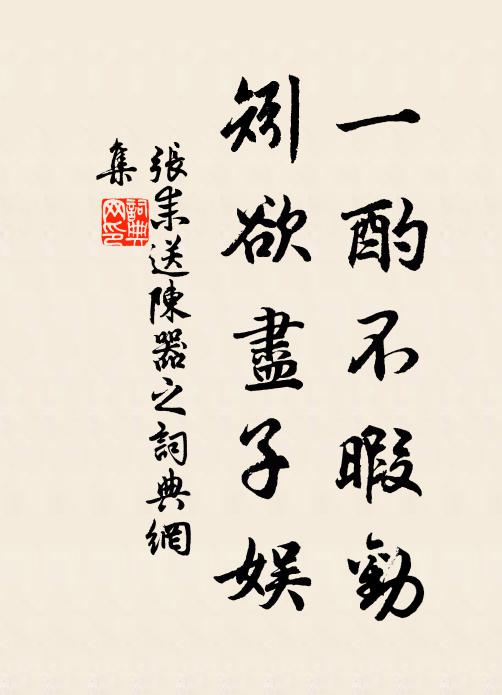 一酌不暇勸
矧欲盡子娛
張耒送陳器之詞典網
集
詞典网印